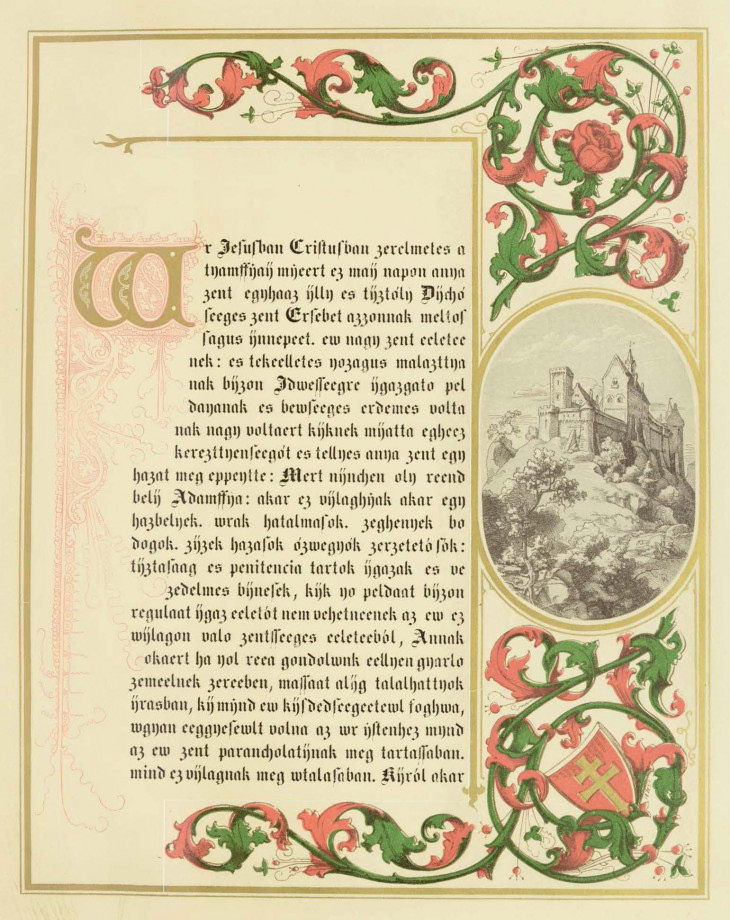 Wr Jeſuſban Criſtuſban zerelmetes a
tyamffyaÿ mÿeert ez maÿ napon anya
zent egÿhaaz ÿlly es tÿztóly Dÿchó
ſeeges zent Erſebet azzonnak meltoſ
ſagus ÿnnepeet. ew nagy zent eeletee
nek: es tekeelletes yozagus malazttya
nak bÿzon Jdweſſeegre ÿgazgato pel
dayanak es bewſeeges erdemes volta
nak nagy voltaert kÿknek mÿatta egheez
kerezttyenſeegót es tellyes anya zent egy
hazat meg eppeytte: Mert nÿnchen oly reend
belÿ Adamffya: akar ez vÿlaghÿak akar egy
hazbelyek. wrak hatalmaſok. zeghenyek bo
dogok. zÿzek hazaſok ózwegyók zerzetetó ſók:
tÿztaſaag es penitencia tartok ÿgazak es ve
zedelmes bÿneſek, kÿk yo peldaat bÿzon
regulaat ÿgaz eeletót nem vehetneenek az ew ez
wÿlagon valo zentſſeeges eeleteeból, Annak
okaert ha yol reea gondolwnk eellyen gyarlo
zemeelnek zereeben, maſſaat alÿg talalhattyok
ÿraſban, kÿ mÿnd ew kÿſdedſeegeetewl foghwa,
wgyan eeggyeſewlt volna az wr ÿſtenhez mynd
az ew zent parancholatÿnak meg tartaſſaban.
mind ez vÿlagnak meg wtalaſaban. Kÿról akar